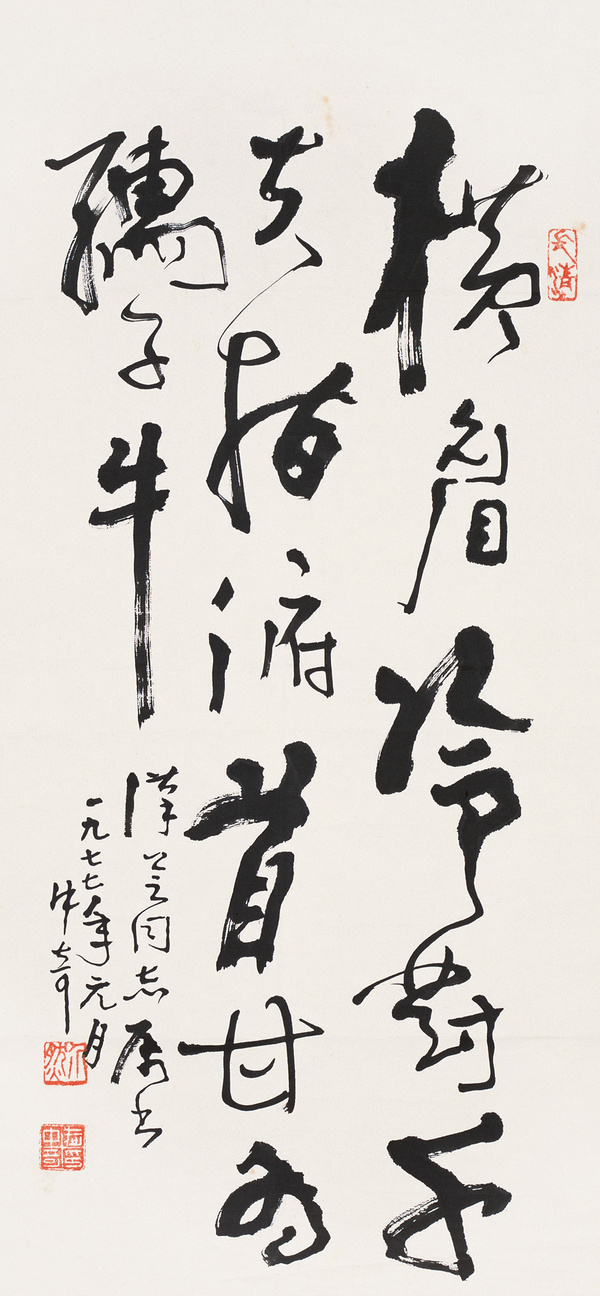 横眉冷對千
夫指俯首甘为
孺子牛
漢芝同志属书
一九七七年元月
中奇